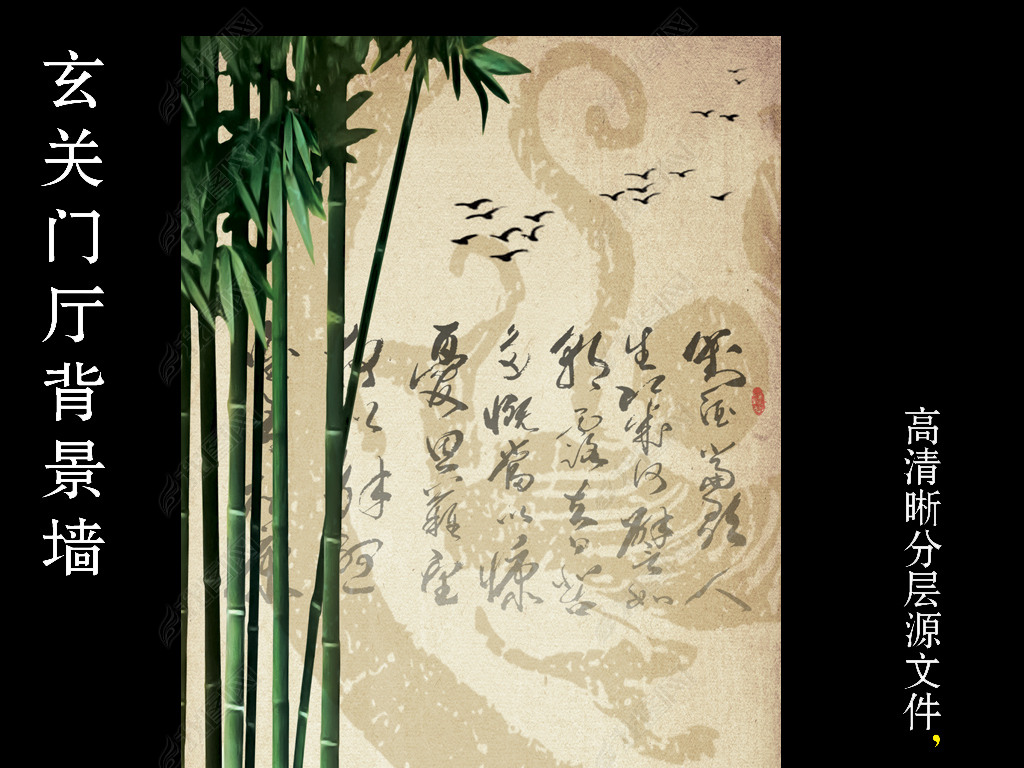 玄关门厅背景墙
對酒當歌人
生幾何譬如
朝露去日苦
多慨當以慷
憂思難忘
以解
高清晰分层源文件，